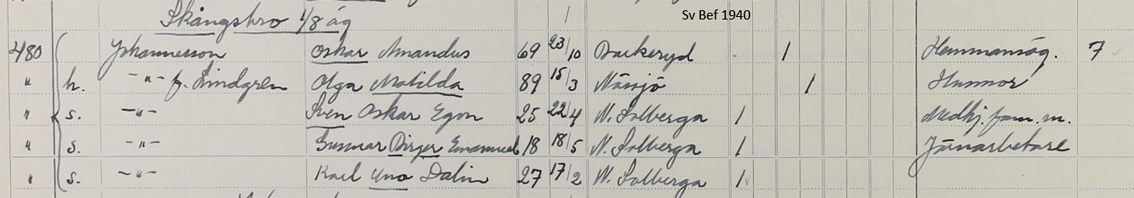 Sv Bef 1940
Skångsbro 1/8 äg
480 Johannesson Oskar Amandus 69 23/10 Barkeryd 1 Hemmansäg. 7
" h. -"- f. Lindgren Olga Matilda 89 15/3 Nässjö 1 Husmor
" s. -"- Sven Oskar Egon 25 22/4 N. Solberga 1 Medhj. fam. m.
" s. -"- Gunnar Birger Emanuel 18 18/5 N. Solberga 1 Järnarbetare
" s. -"- Karl Uno Dalin 27 17/2 N. Solberga 1